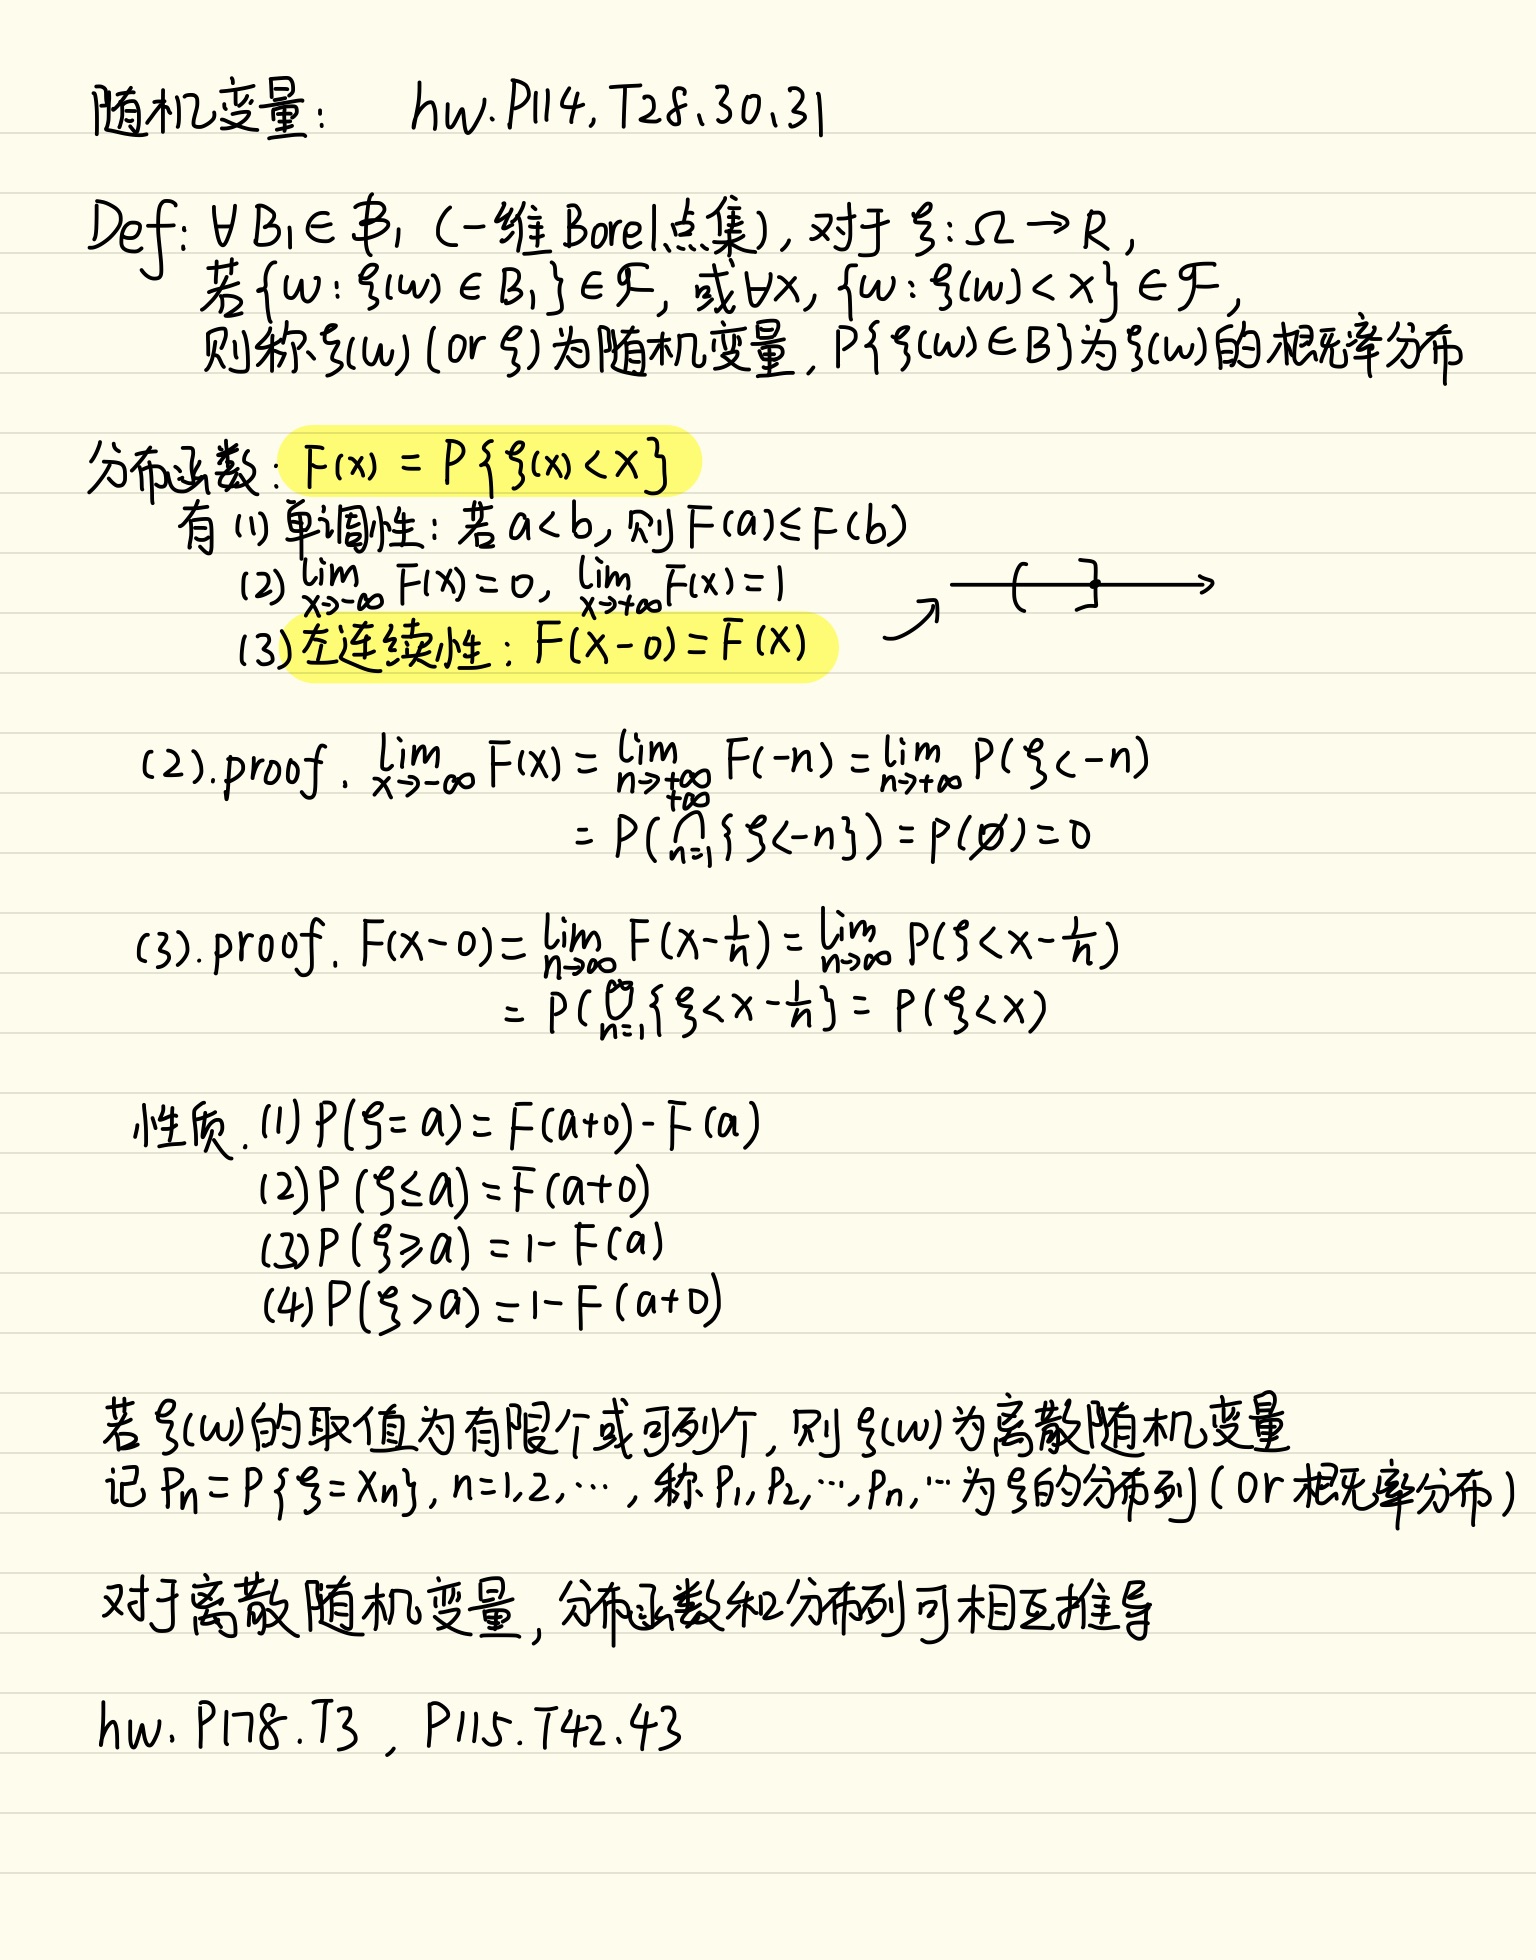 随机变量: hw.P114,T28.30.31
Def: ∀B₁∈𝓑₁ (一维Borel点集), 对于 ξ:Ω→R,
若{ω:ξ(ω)∈B₁}∈ℱ, 或∀x, {ω:ξ(ω)<x}∈ℱ,
则称ξ(ω)(or ξ)为随机变量, P{ξ(ω)∈B}为ξ(ω)的概率分布
分布函数: F(x) = P{ξ(x)<x}
有 (1) 单调性: 若 a<b, 则 F(a)≤F(b)
(2) lim_{x→-∞} F(x)=0, lim_{x→+∞} F(x)=1
(3) 左连续性: F(x-0)=F(x)
(2).proof. lim_{x→-∞} F(x) = lim_{n→+∞} F(-n) = lim_{n→+∞} P(ξ<-n)
= P(⋂_{n=1}^{+∞}{ξ<-n}) = P(∅) = 0
(3).proof. F(x-0) = lim_{n→∞} F(x-1/n) = lim_{n→∞} P(ξ<x-1/n)
= P(⋃_{n=1}^{∞}{ξ<x-1/n} = P(ξ<x)
性质. (1) P(ξ=a) = F(a+0)-F(a)
(2) P(ξ≤a) = F(a+0)
(3) P(ξ≥a) = 1-F(a)
(4) P(ξ>a) = 1-F(a+0)
若 ξ(ω)的取值为有限个或可列个, 则 ξ(ω)为离散随机变量
记 Pn = P{ξ=xn}, n=1,2,…, 称 P₁,P₂,…,Pn,… 为ξ的分布列(or 概率分布)
对于离散随机变量, 分布函数和分布列可相互推导
hw. P178.T3, P115.T42.43